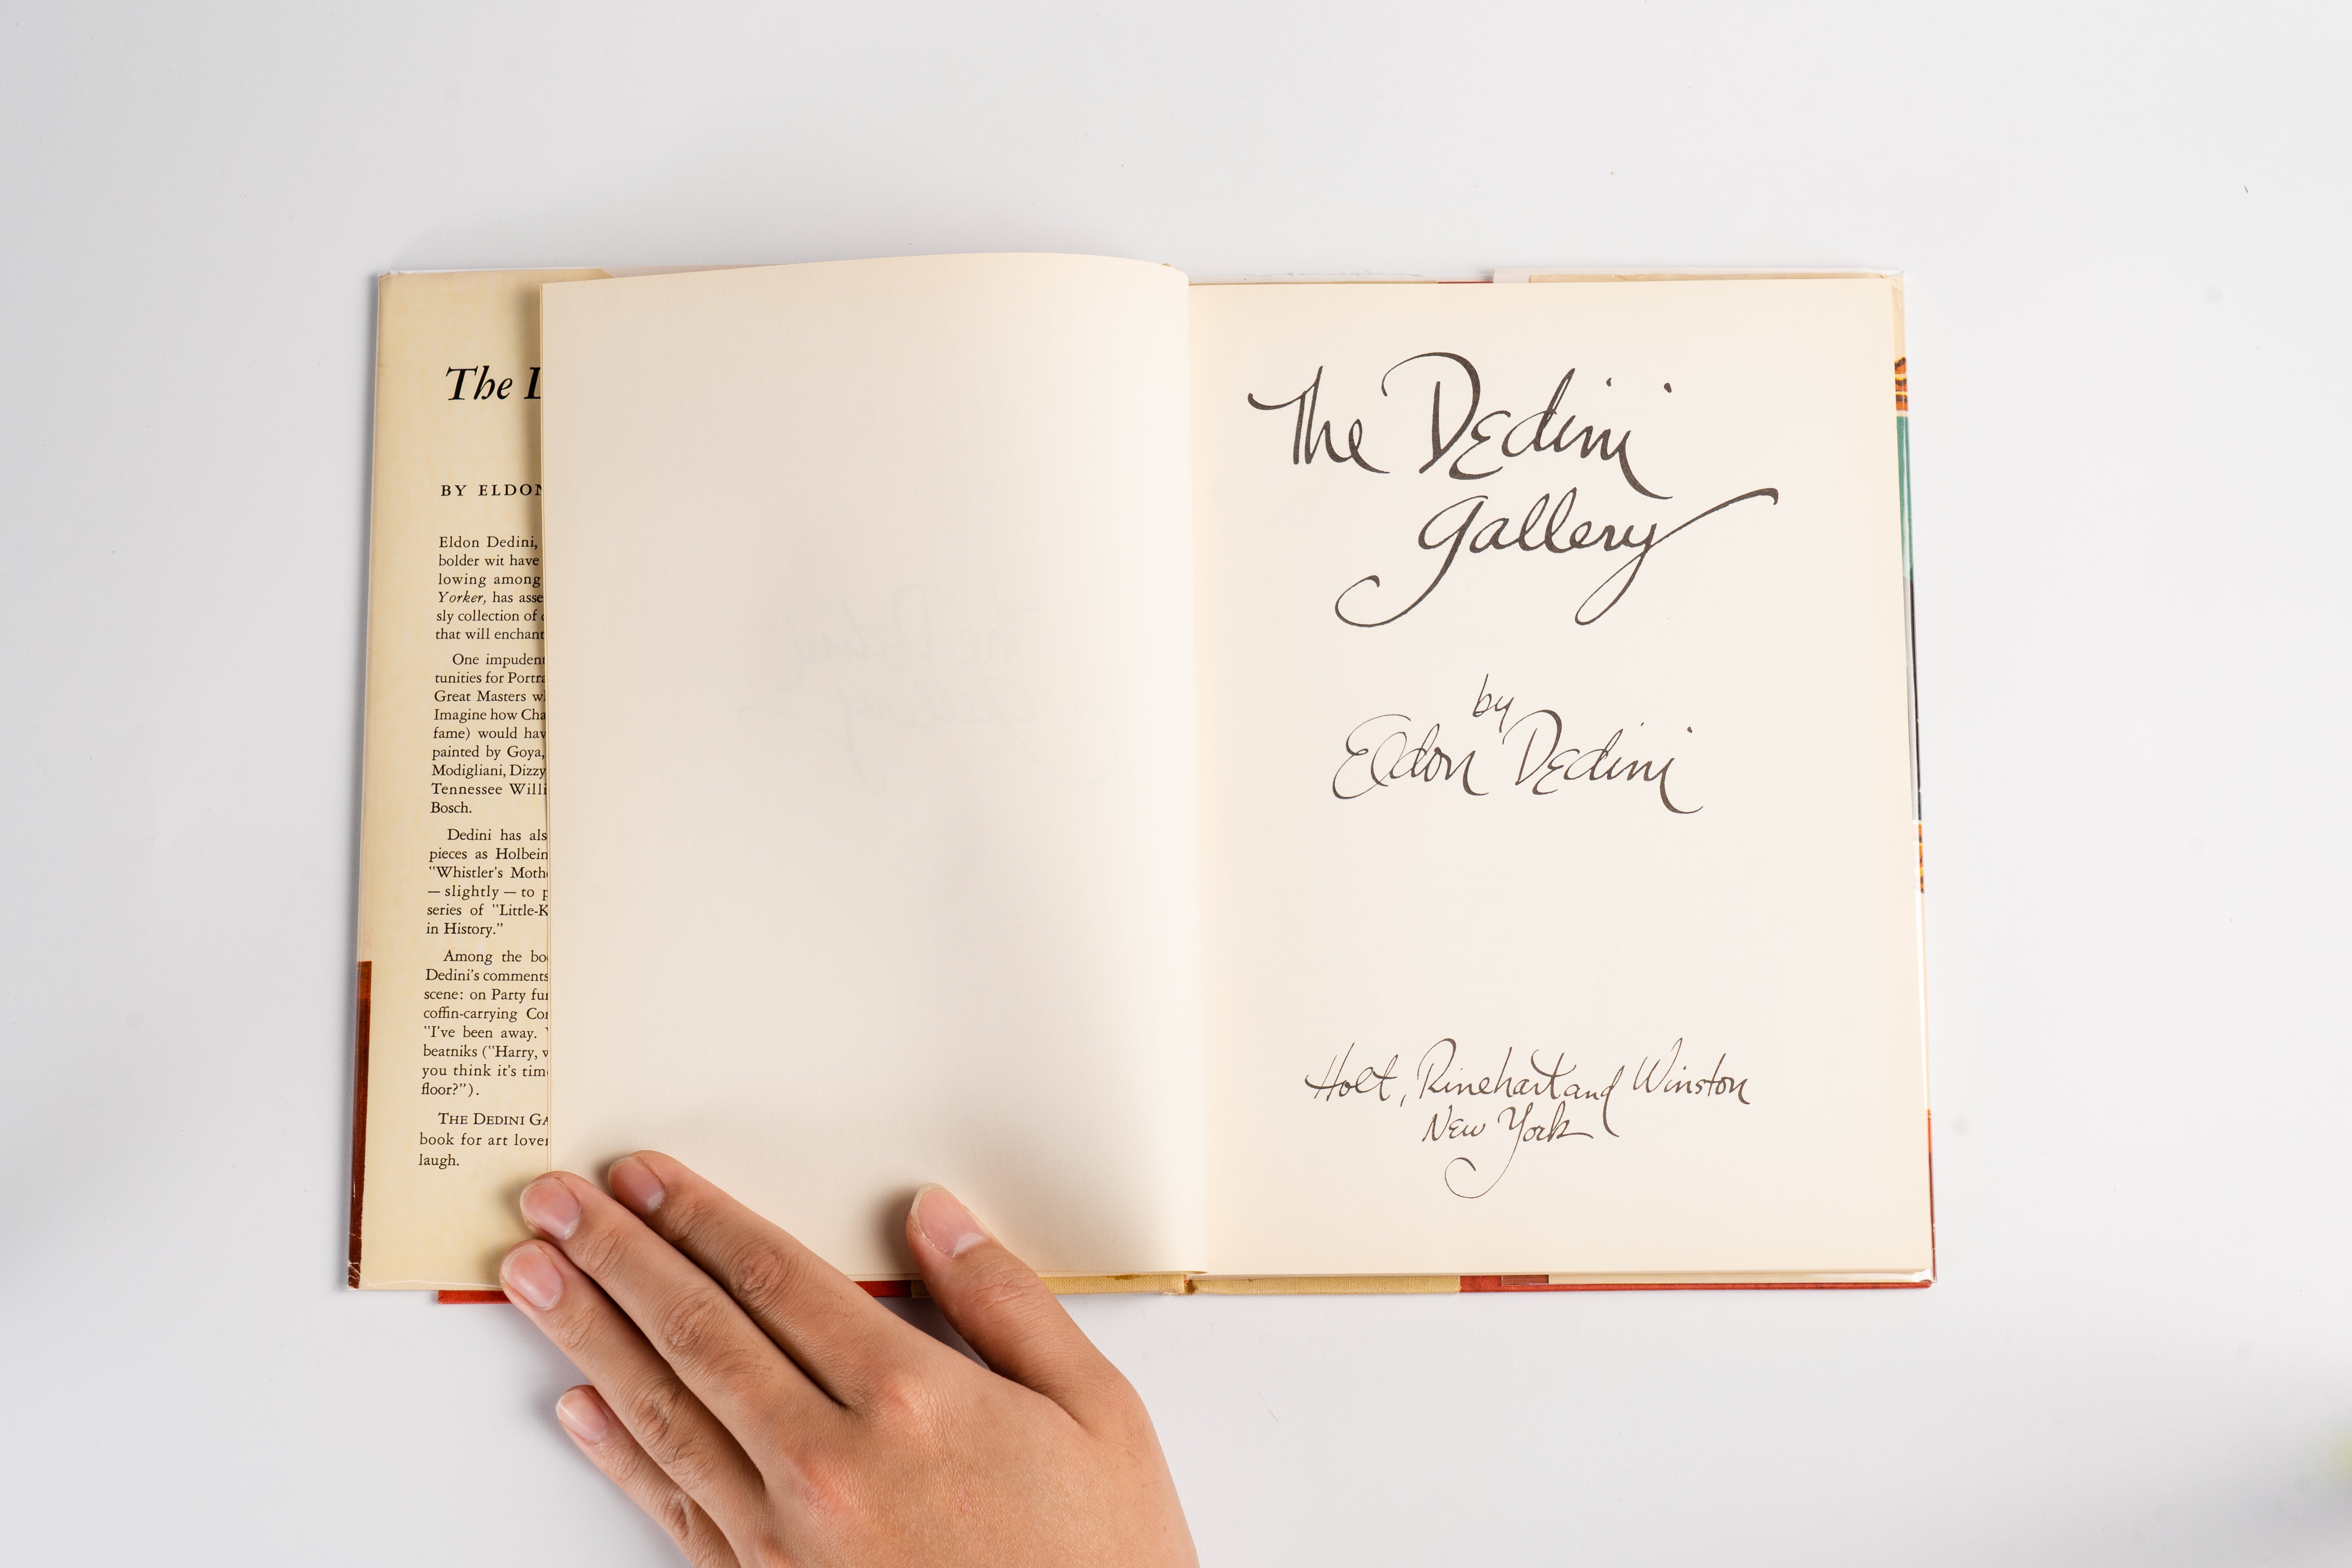 The
BY ELDON
Eldon Dedini,
bolder wit have
lowing among
Yorker, has asse
sly collection of
that will enchant
One impudent
tunities for Portra
Great Masters w
Imagine how Cha
fame) would hav
painted by Goya,
Modigliani, Dizzy
Tennessee Willi
Bosch.
Dedini has als
pieces as Holbein
"Whistler's Moth
— slightly — to p
series of "Little-K
in History."
Among the bo
Dedini's comments
scene: on Party fu
coffin-carrying Co
"I've been away.
beatniks ("Harry, w
you think it's tim
floor?").
THE DEDINI GA
book for art lover
laugh.
The Dedini
Gallery
by
Eldon Dedini
Holt, Rinehart and Winston
New York